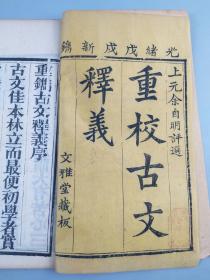 光緒戊戌新鐫
上元余自明評選
重校古文
釋義
文雅堂藏板
重鐫古文釋義序
古文佳本林立而最便初學者